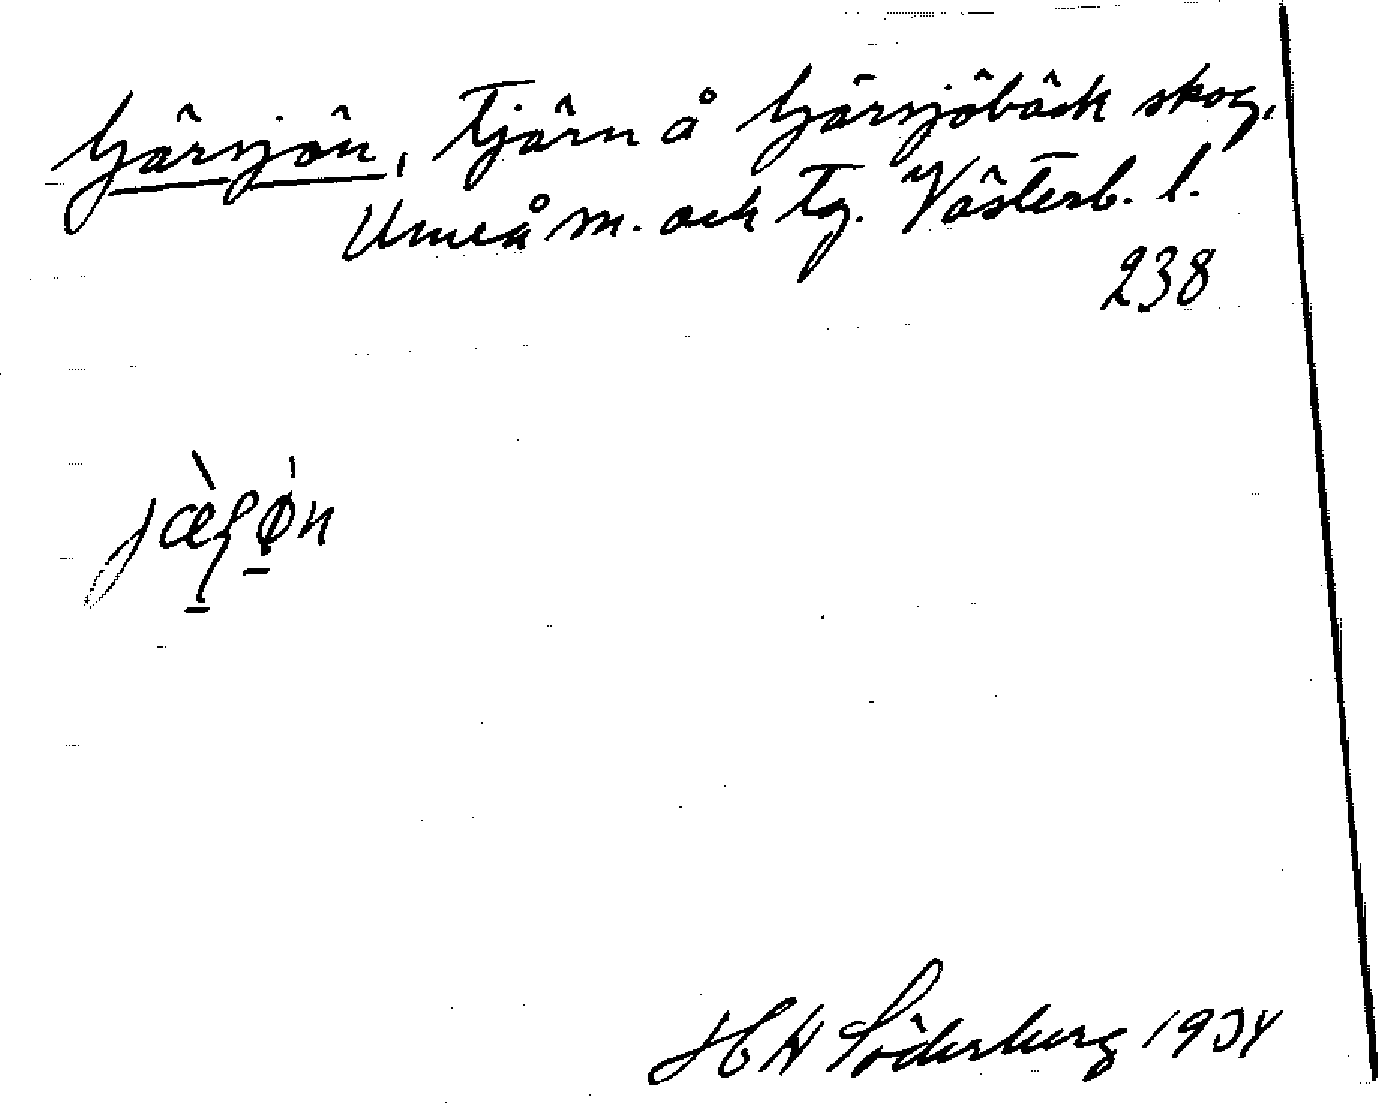 Gärsjön, Tjärn å Gärsjöbäck skog,
Umeå m. och tg. Västerb. l.
238
HW Söderberg 1934